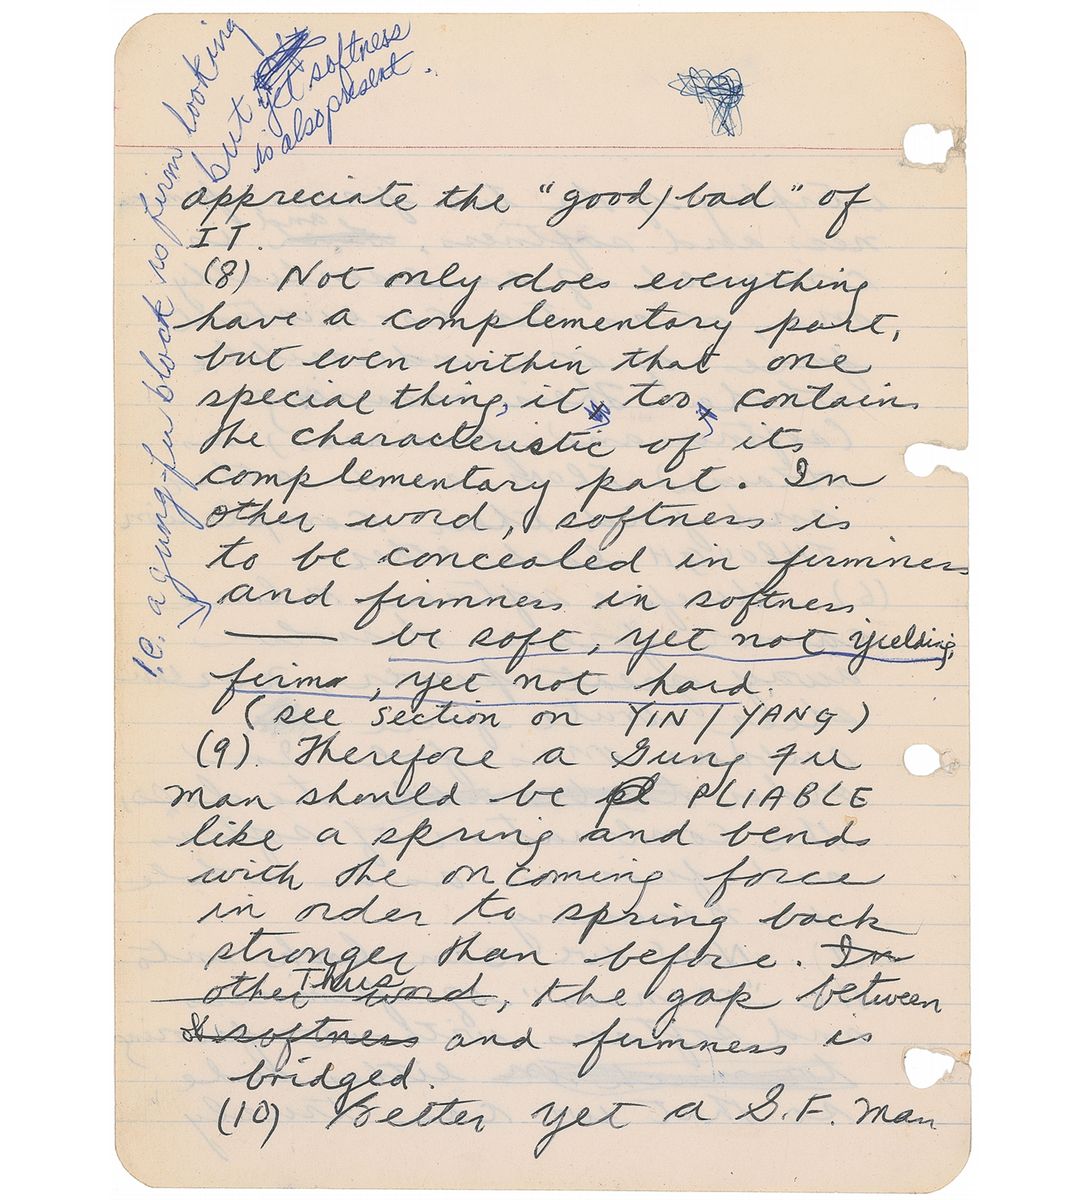 i.e. a gung-fu block is firm looking
but yet softness
is also present.
appreciate the "good/bad" of
IT.
(8) Not only does everything
have a complementary part,
but even within that one
special thing, it too, contains
the characteristic of its
complementary part. In
other word, softness is
to be concealed in firmness
and firmness in softness
— be soft, yet not yielding,
firm, yet not hard.
(see section on YIN/YANG)
(9). Therefore a Gung Fu
man should be PLIABLE
like a spring and bends
with the oncoming force
in order to spring back
stronger than before. In
Thus
other word, the gap between
softness and firmness is
bridged.
(10) Better yet a G.F. man